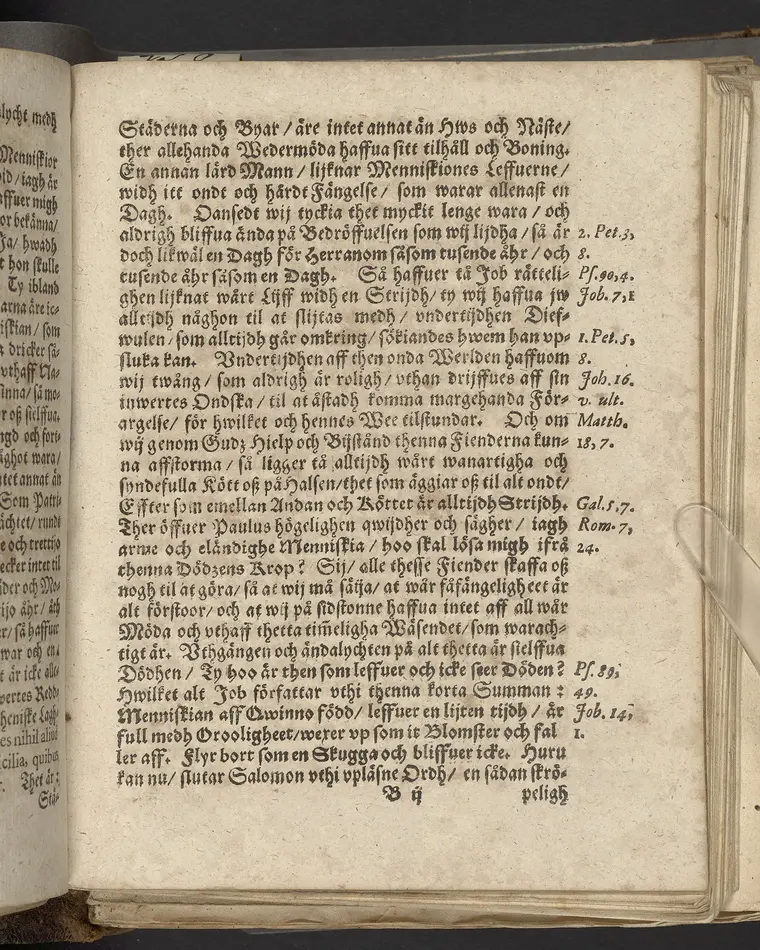 Städerna och Byar / äre intet annat än Hws och Näste/
ther allehanda Wedermöda haffua sitt tilhåll och Boning.
En annan lärd Mann / lijknar Menniskiones Leffuerne/
widh itt ondt och hårdt Fängelse / som warar allenast en
Dagh. Oansedt wij tyckia thet myckit lenge wara / och
aldrigh bliffua ända på Bedröffuelsen som wij lijdha / så är 2. Pet.3,
doch likwäl en Dagh för Herranom såsom tusende åhr / och 8.
tusende åhr såsom en Dagh. Så haffuer tå Job rätteli- Ps.90,4.
ghen lijknat wårt Lijff widh en Strijdh/ ty wij haffua jw Job. 7,1
alltijdh någhon til at slijtas medh / vndertijdhen Dief-
wulen / som alltijdh går omkring / sökiandes hwem han vp- 1. Pet.5,
sluka kan. Vndertijdhen aff then onda Werlden haffuom 8.
wij twång / som aldrigh är roligh / vthan drijffues aff sin Joh.16.
inwertes Ondska / til at åstadh komma margehanda För- v. ult.
argelse / för hwilket och hennes Wee tilstundar. Och om Matth.
wij genom Gudz Hielp och Bijstånd thenna Fienderna kun- 18,7.
na affstorma / så ligger tå alltijdh wårt wanartigha och
syndefulla Kött oß på Halsen/thet som äggiar oß til alt ondt/
Effter som emellan Andan och Köttet är alltijdh Strijdh. Gal.5,7.
Ther öffuer Paulus högelighen qwijdher och sägher / iagh Rom.7,
arme och eländighe Menniskia / hoo skal lösa migh ifrå 24.
thenna Dödzens Krop? Sij/ alle thesse Fiender skaffa oß
nogh til at göra/ så at wij må sätja/ at wår fåfängeligheet är
alt förstoor/ och at wij på sidstonne haffua intet aff all wår
Möda och vthaff thetta tim̃eligha Wäsendet/som warach-
tigt är. Vthgången och ändalychten på alt thetta är sielffua
Dödhen / Ty hoo är then som leffuer och icke seer Döden? Ps.89,
Hwilket alt Job författar vthi thenna korta Summan : 49.
Menniskian aff Qwinno född/ leffuer en lijten tijdh / är Job.14,
full medh Orooligheet/wexer vp som it Blomster och fal 1.
ler aff. Flyr bort som en Skugga och bliffuer icke. Huru
kan nu/ slutar Salomon vthi vpläsne Ordh/ en sådan skrö-
B ij peligh